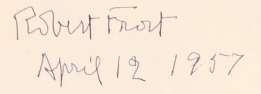 Robert Frost
April 12 1957